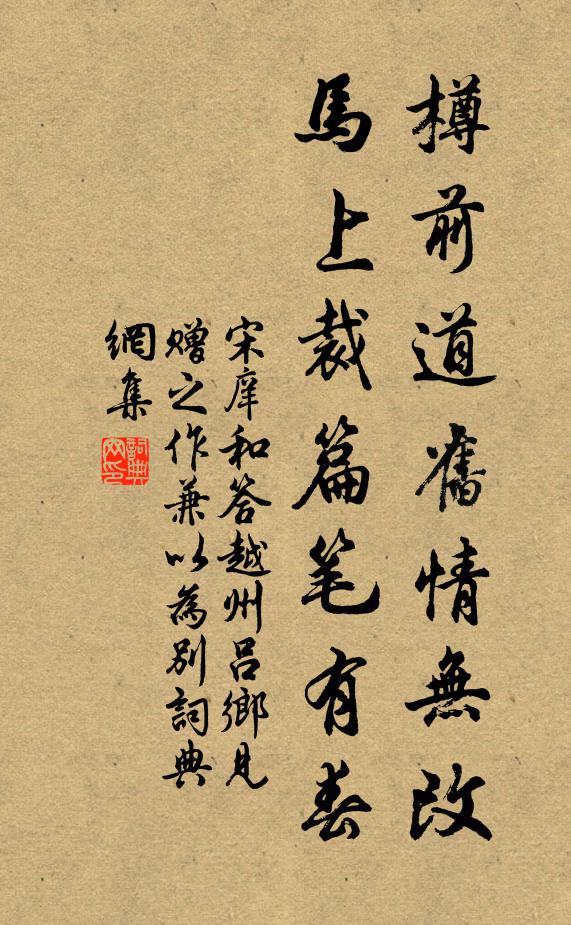 樽前道舊情無改
馬上裁篇笔有春
宋庠和答越州呂鄉見
贈之作兼以為別詞典
網集
詞典
网印